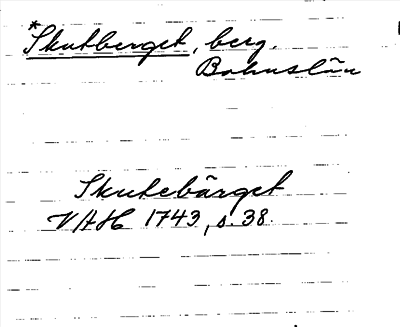 *Skutberget, berg.
Bohuslän
Skutebärget
VAH 1743, s. 38.